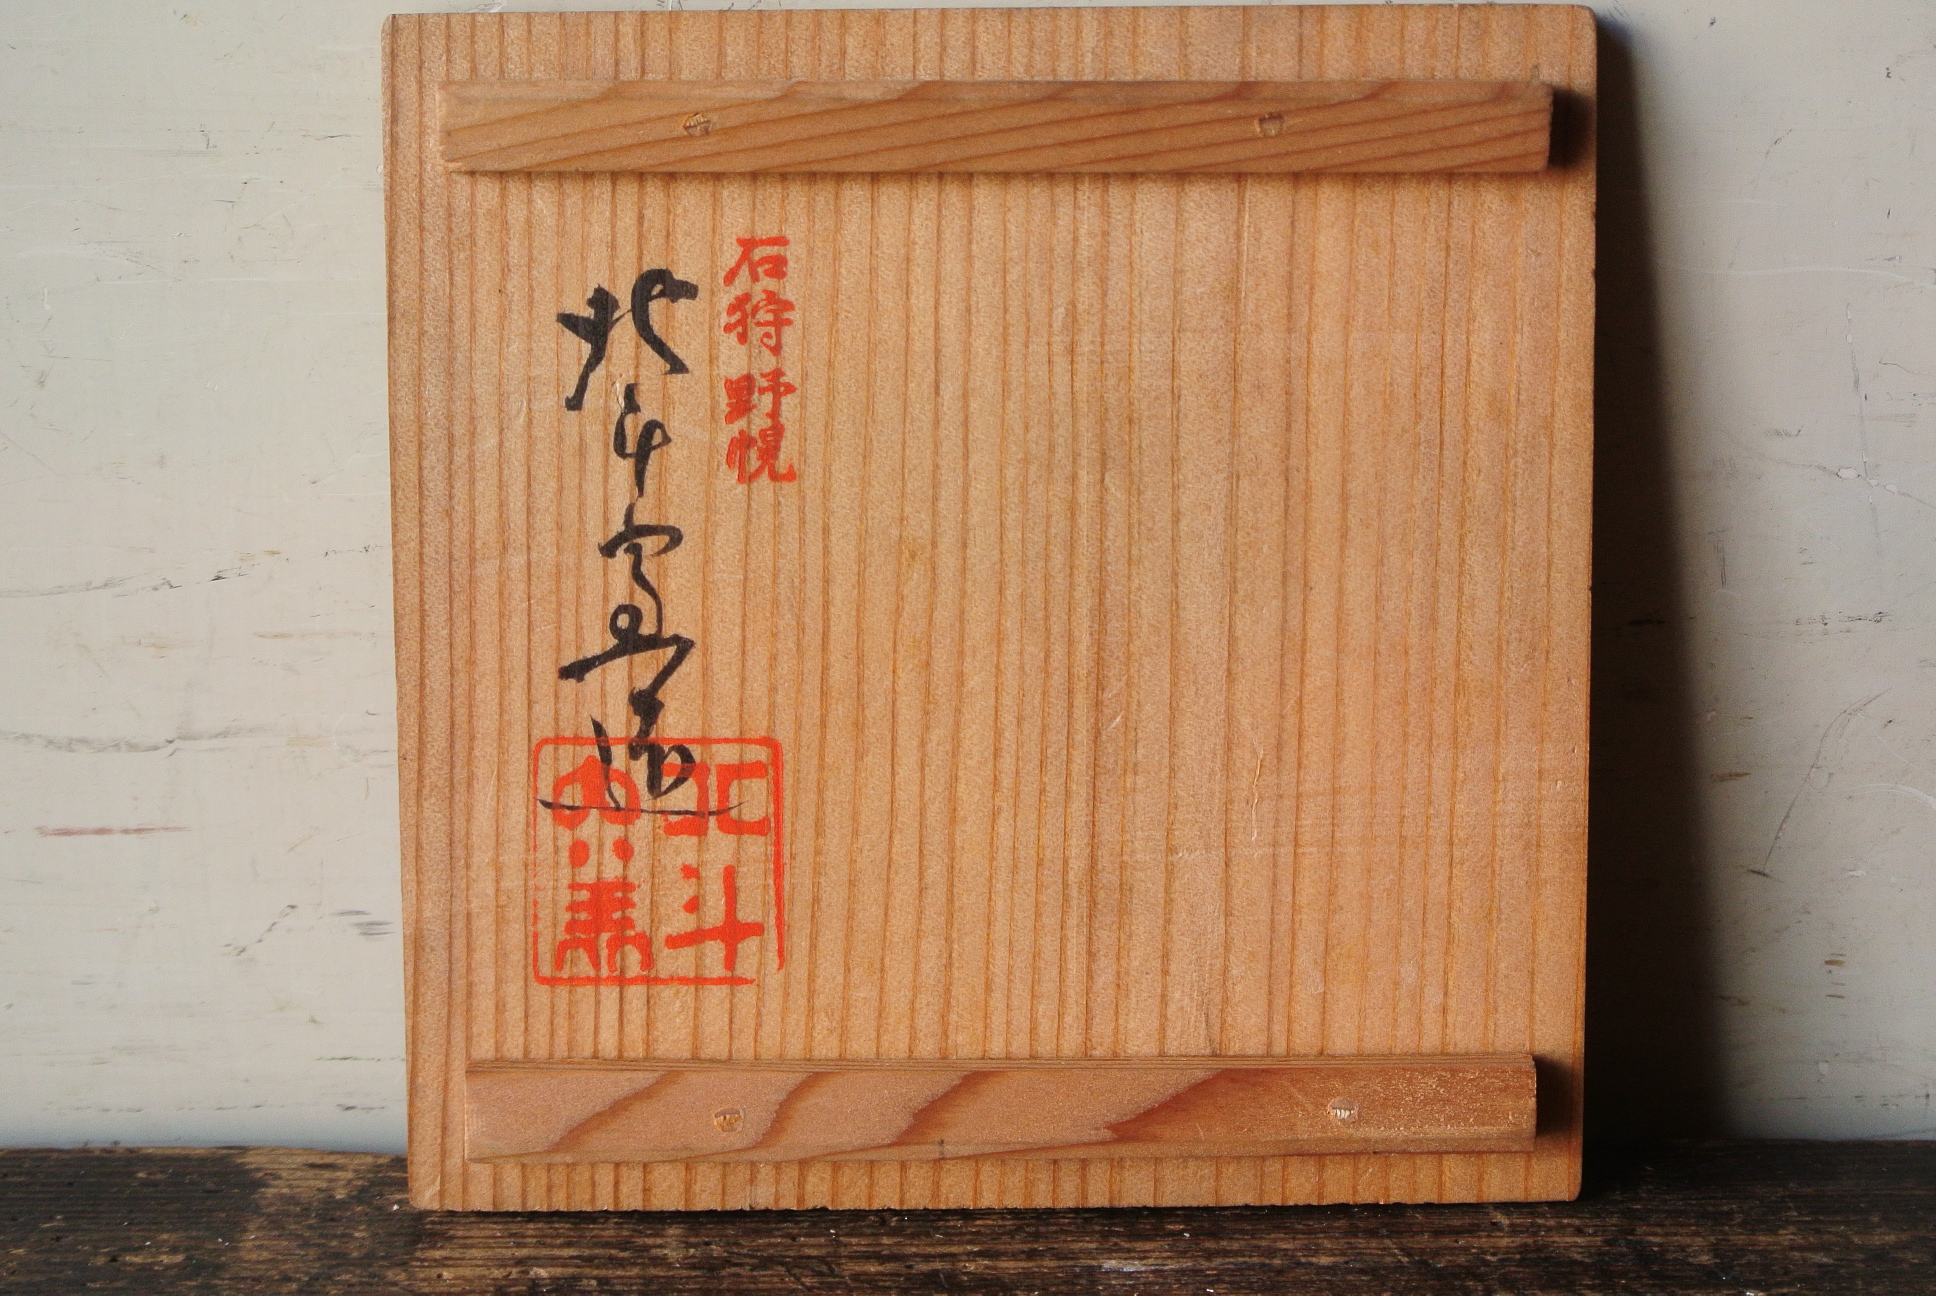 石狩野幌
北斗窯造
北斗
窯